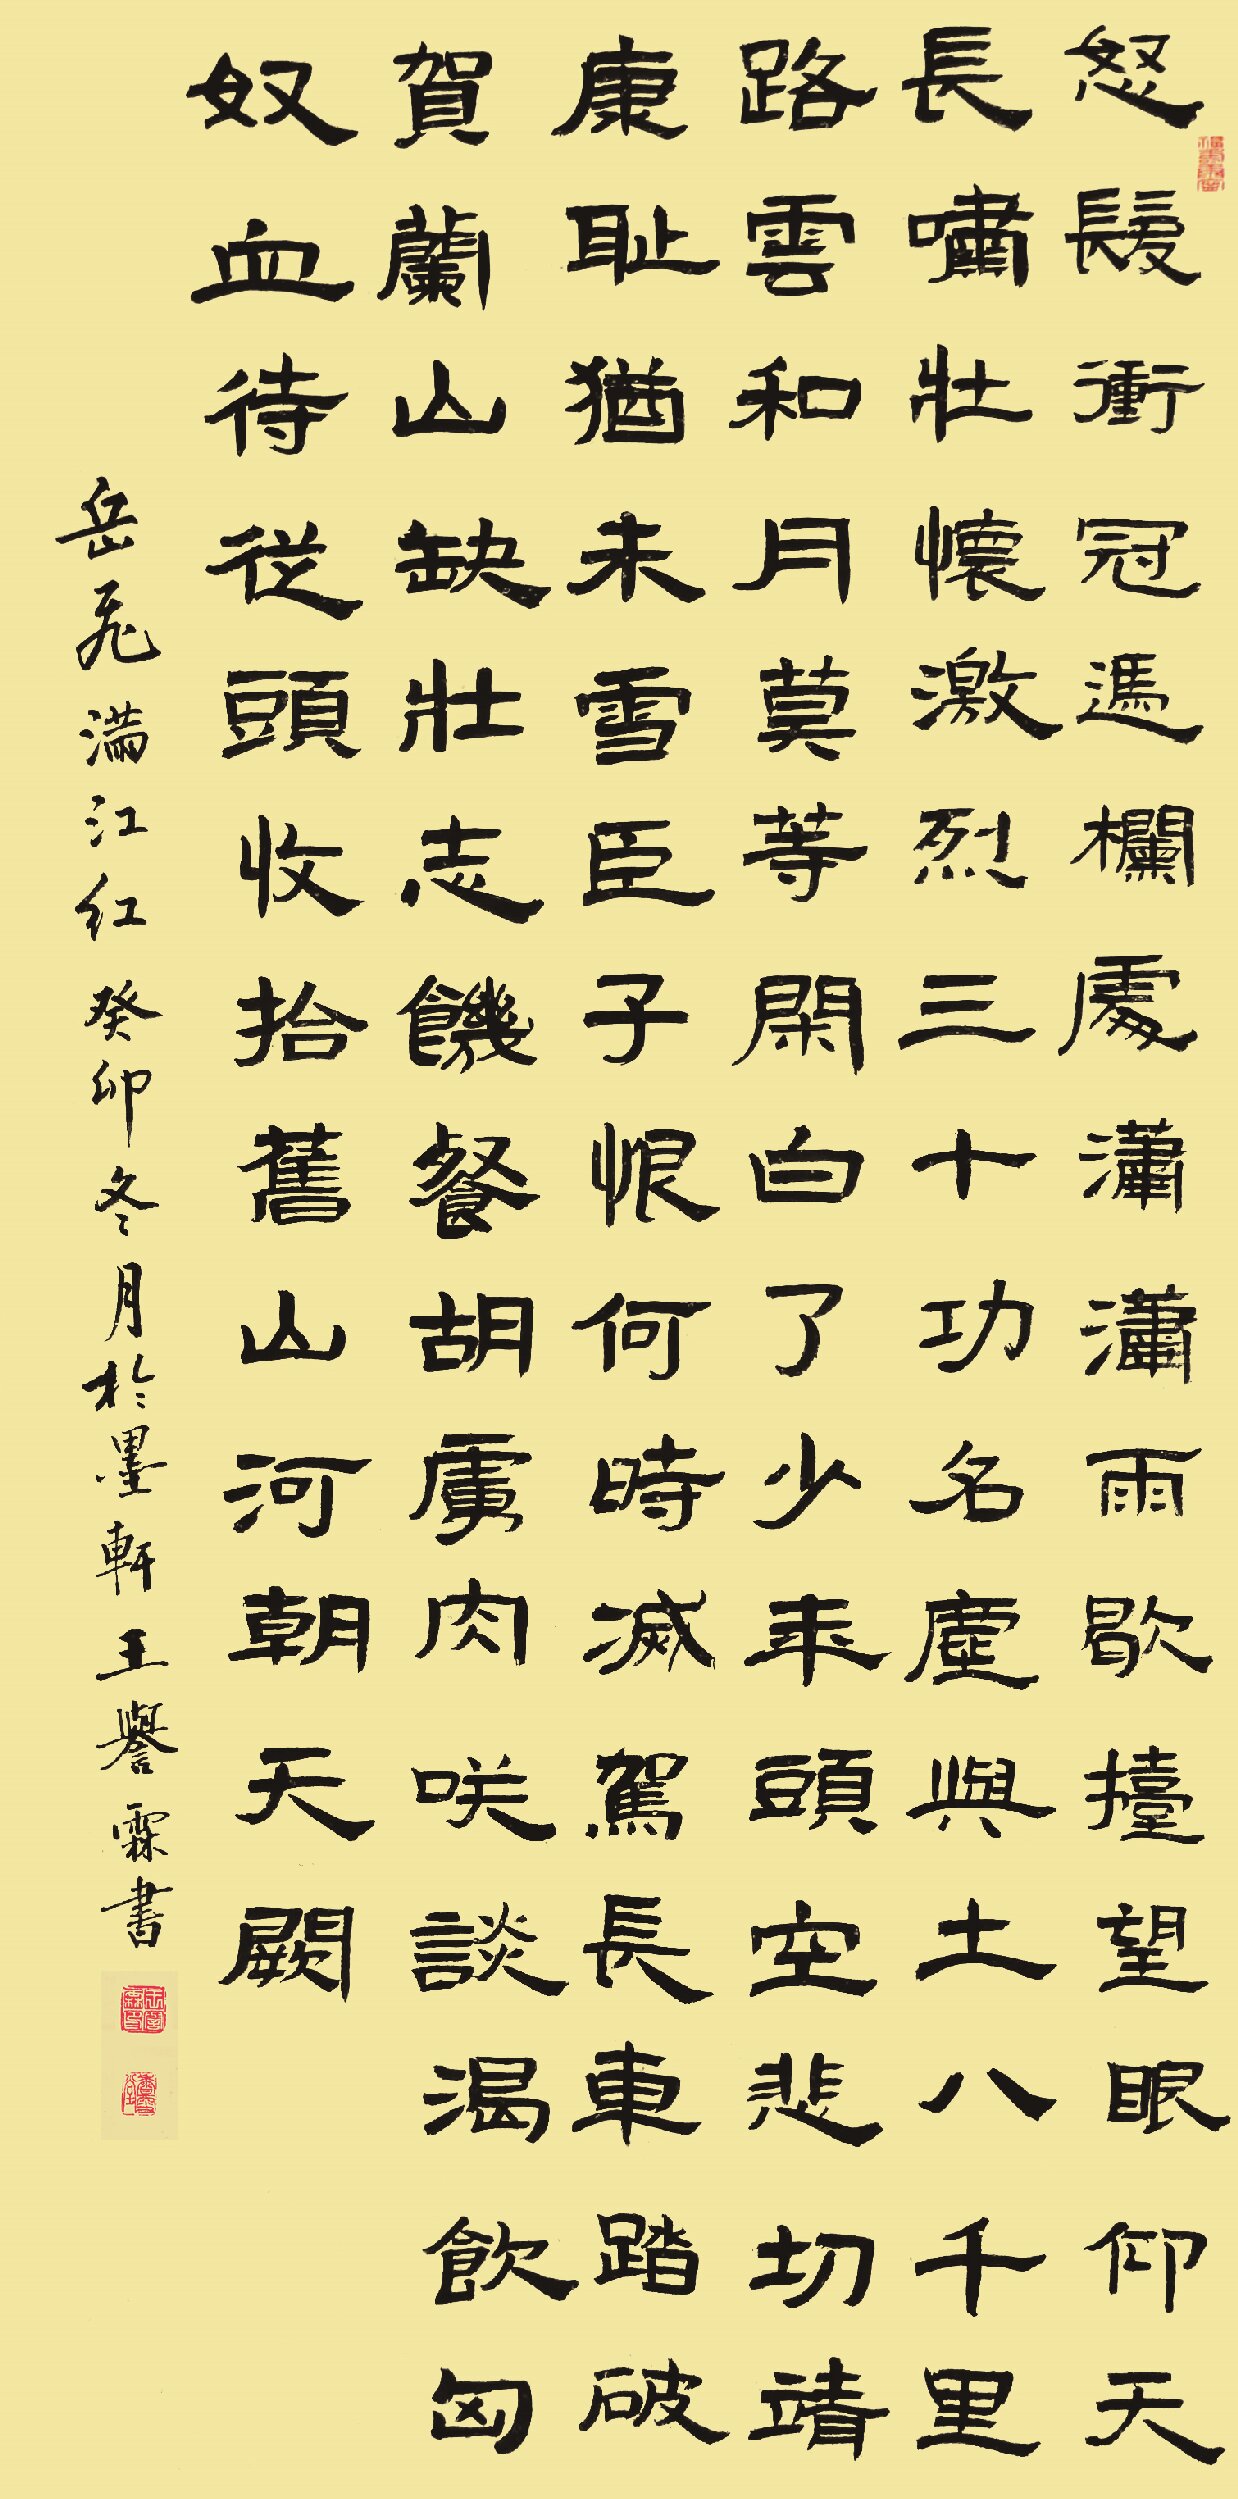 怒髮衝冠馮欄處瀟瀟雨歇擡望眼仰天
長嘯壯懷激烈三十功名塵與土八千里
路雲和月莫等閑白了少年頭空悲切靖
康耻猶未雪臣子恨何時滅駕長車踏破
賀蘭山缺壯志饑餐胡虜肉咲談渴飲匈
奴血待從頭收拾舊山河朝天闕
岳飛滿江红癸卯冬月於墨軒王譽霖書